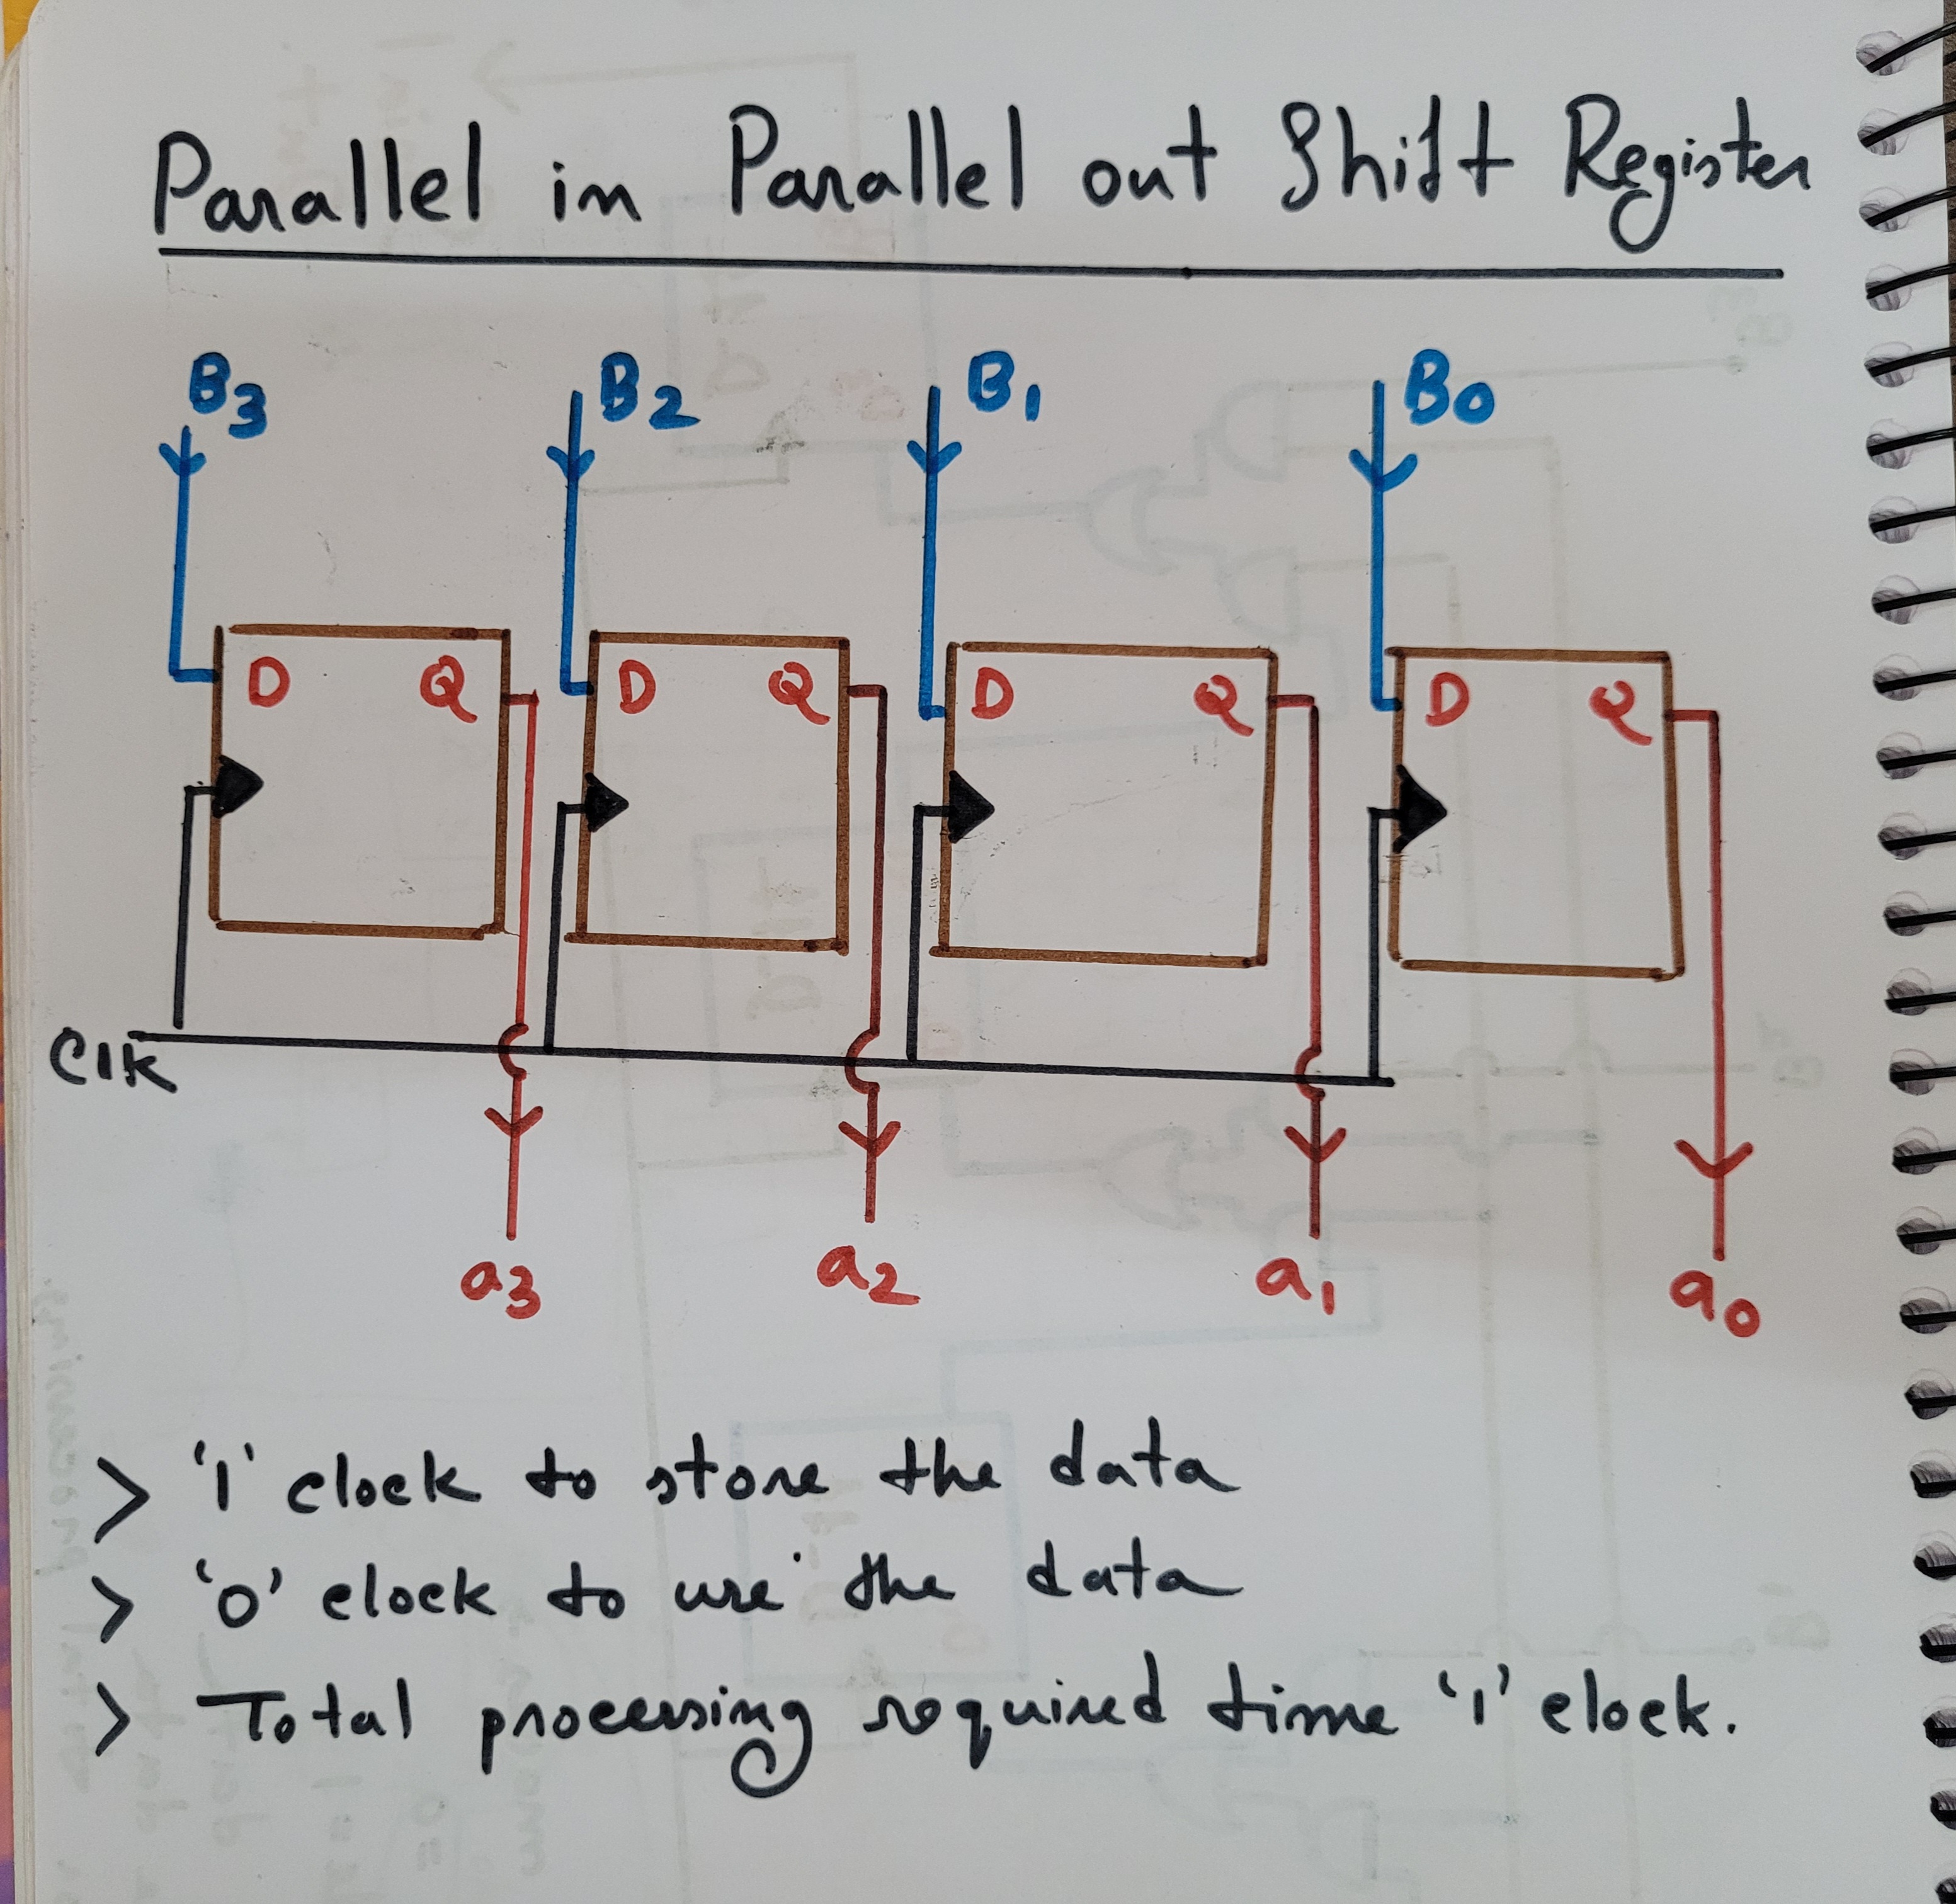 Parallel in Parallel out Shift Register
B3 B2 B1 B0
D Q D Q D Q D Q
Clk
a3 a2 a1 a0
> '1' clock to store the data
> '0' clock to use the data
> Total processing required time '1' clock.